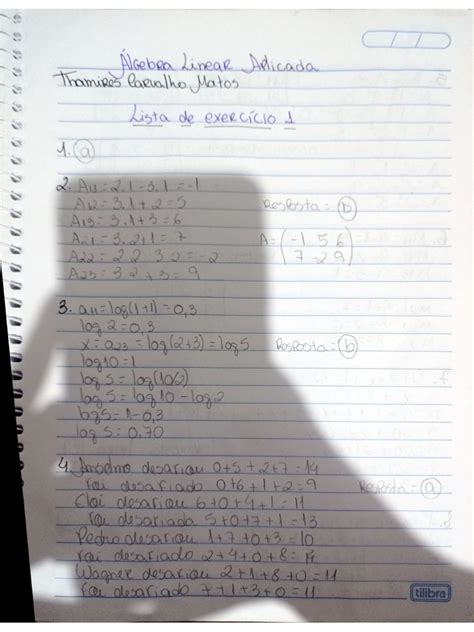 Álgebra Linear Aplicada
Thamires Carvalho Matos
Lista de exercício 1
1. (a)
2. A11 = 2.1 - 3.1 = -1
A12 = 3.1 + 2 = 5 Resposta = (b)
A13 = 3.1 + 3 = 6
A21 = 3.2+1 = 7 A = (-1 5 6
A22 = 2.2 3.2 = -2 7 -2 9)
A23 = 3.2 + 3 = 9
3. a11 = log(1+1) = 0,3
log 2 = 0,3
x = a23 = log(2+3) = log 5 Resposta = (b)
log 10 = 1
log 5 = log (10/2)
log 5 = log 10 - log 2
log 5 = 1 - 0,3
log 5 = 0,70
4. Anselmo desafiou 0+5+2+7 = 14
foi desafiado 0+6+1+2 = 9 Resposta = (a)
Cloi desafiou 6+0+4+1 = 11
foi desafiada 5+0+7+1 = 13
Pedro desafiou 1+7+0+3 = 10
foi desafiado 2+4+0+8 = 14
Wagner desafiou 2+1+8+0 = 11
foi desafiado 7+1+3+0 = 11
tilibra